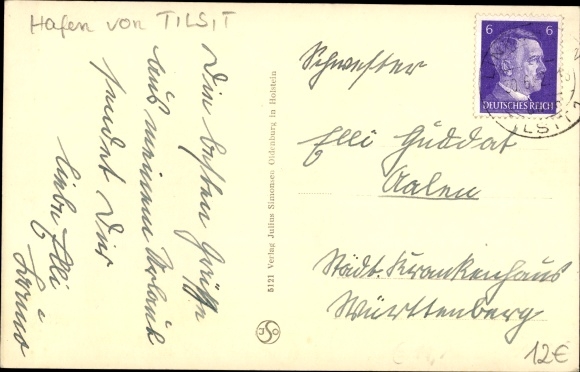 Hafen von TILSIT
Die besten Grüße
aus meinem Urlaub
sendet Dir
liebe Elli
5121 Verlag Julius Simonsen Oldenburg in Holstein
JSO
6 6
DEUTSCHES REICH
TILSIT 2
Schwester
Elli Guddat
Aalen
Städt. Krankenhaus
Württemberg
12€